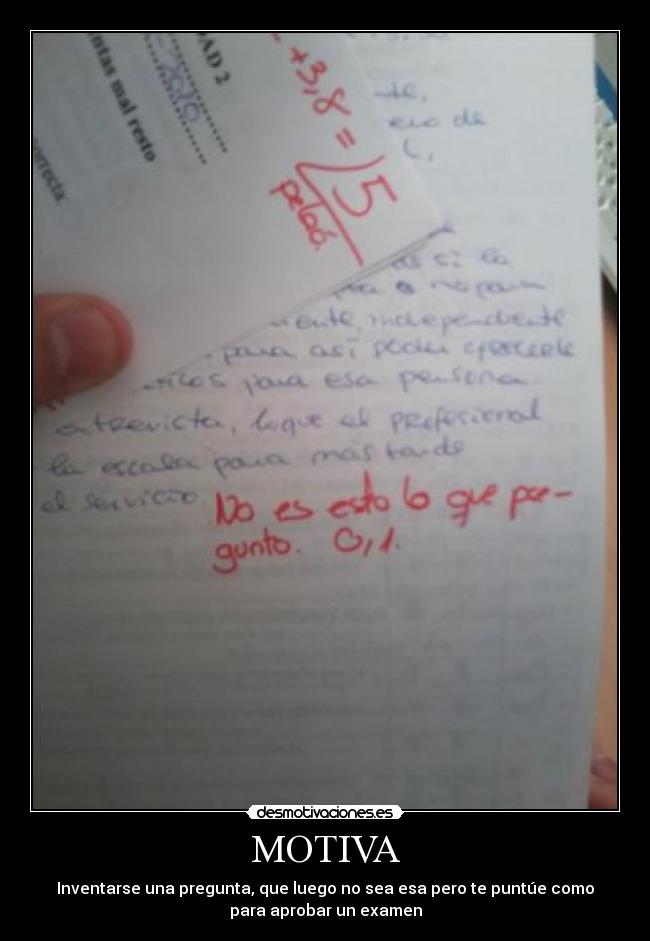 DAD 2
ntas mal resto
orrecta
+3,8 = 5
pelao.
ero de
as si la
o no para
mente, independiente
para así poder ofrecerle
para esa persona.
entrevista, lo que el profesional
la escala para más tarde
el servicio.
No es esto lo que pre-
gunto. 0,1.
desmotivaciones.es
MOTIVA
Inventarse una pregunta, que luego no sea esa pero te puntúe como
para aprobar un examen